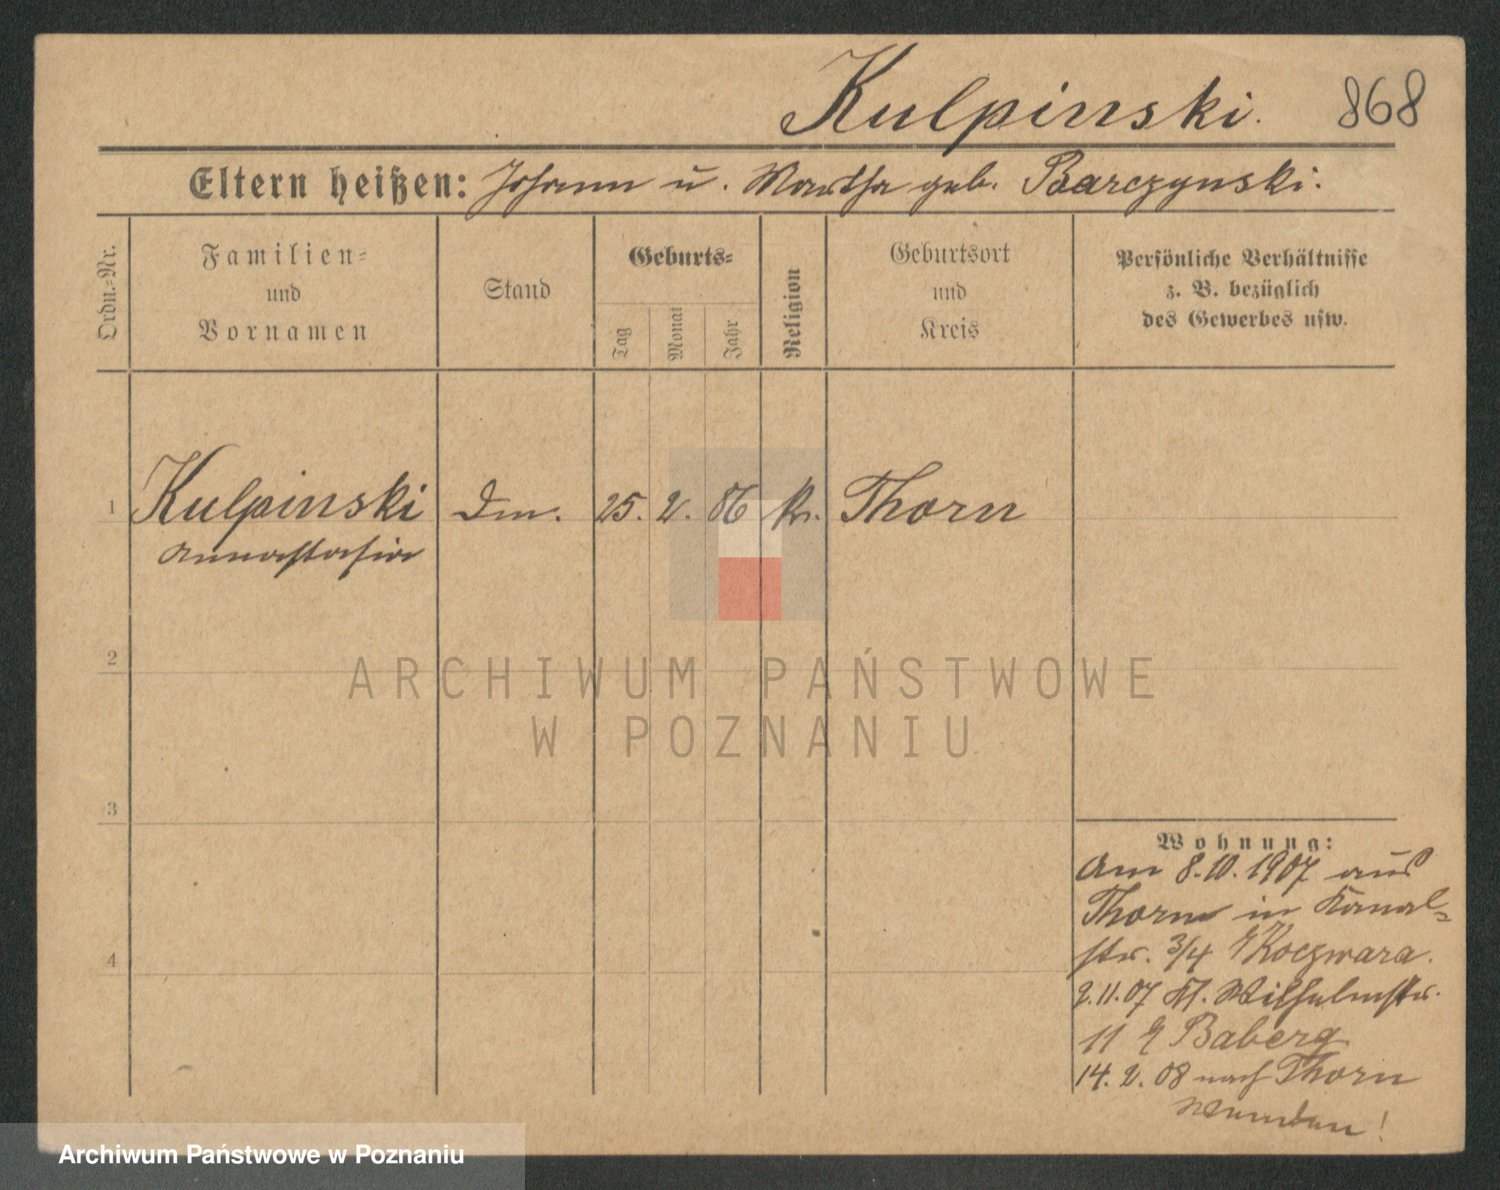 Kulpinski. 868
Eltern heißen: Johann u. Martha geb. Barczynski.
Ordn.-Nr.
Familien-
und
Vornamen
Stand
Geburts-
Tag
Monat
Jahr
Religion
Geburtsort
und
Kreis
Persönliche Verhältnisse
z. B. bezüglich
des Gewerbes usw.
1 Kulpinski 25. 2. 86 Thorn
Annastasia
ARCHIWUM PAŃSTWOWE
W POZNANIU
2
3
4
Wohnung:
Am 8.10.1907 aus
Thorn in Kanal-
str. 3/4 Koczwara.
2.11.07 Kl. Wilhelmstr.
11 Baberg
14. 2. 08 nach Thorn
Archiwum Państwowe w Poznaniu